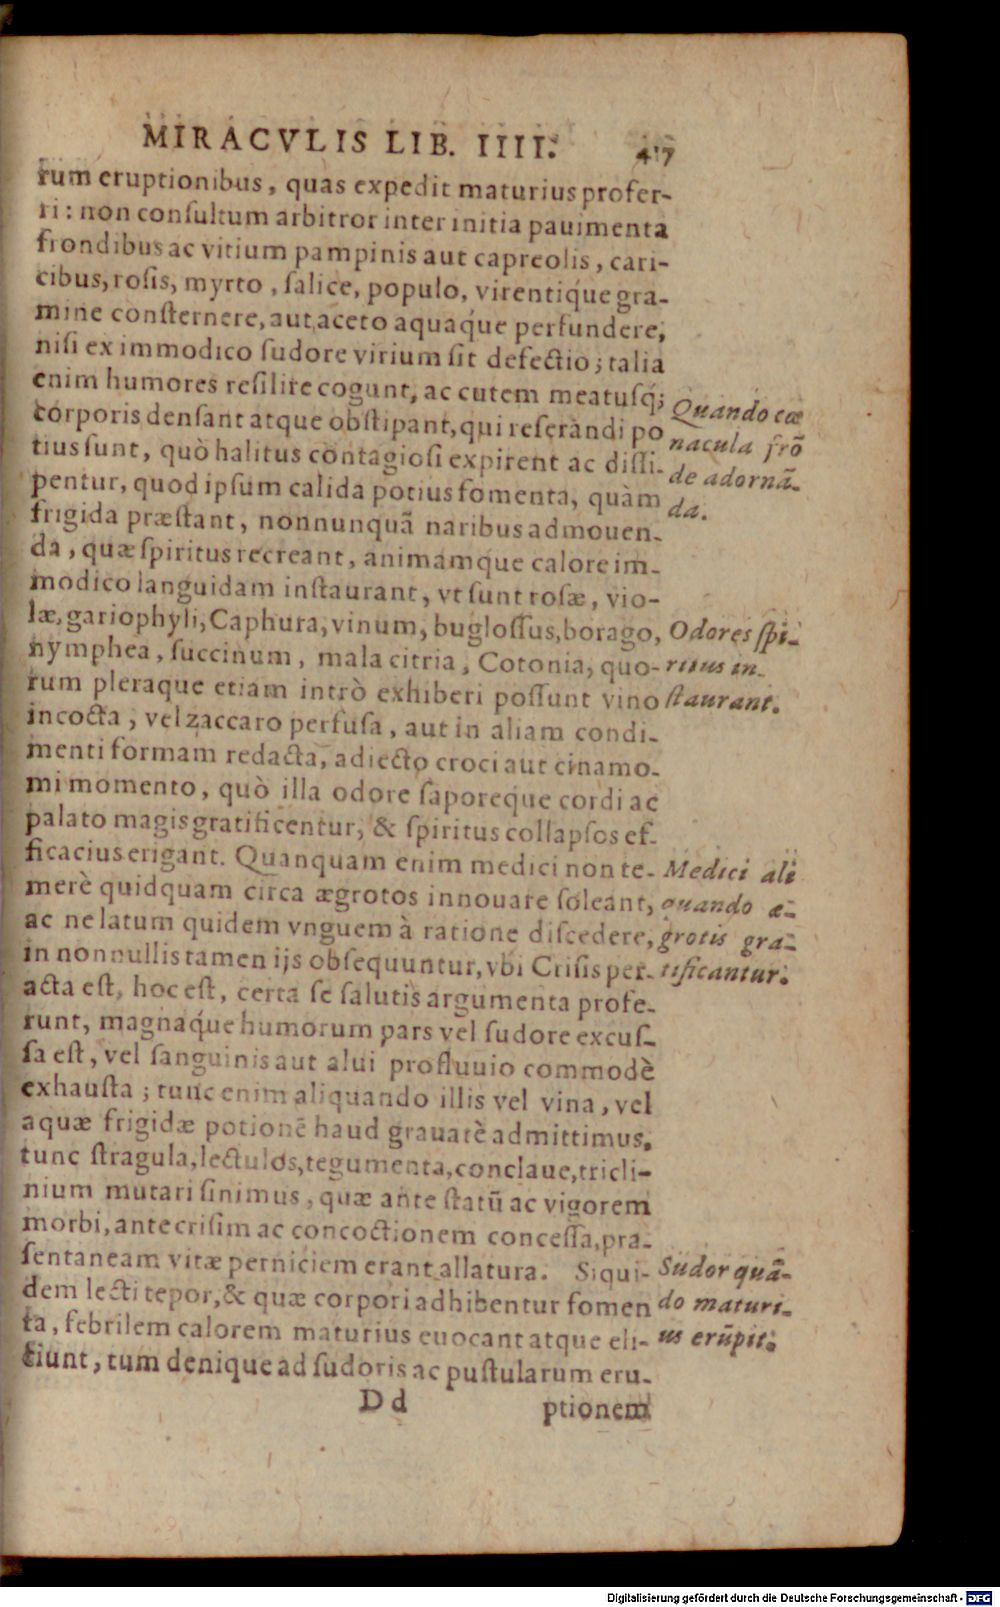 MIRACVLIS LIB. IIII. 417
rum eruptionibus, quas expedit maturius profer-
ri: non consultum arbitror inter initia pauimenta
frondibus ac vitium pampinis aut capreolis, cari-
cibus, rosis, myrto, salice, populo, virentiq́ue gra-
mine consternere, aut aceto aquaq́ue perfundere,
nisi ex immodico sudore virium sit defectio; talia
enim humores resilire cogunt, ac cutem meatusq́;
corporis densant atque obstipant, qui referàndi po
tius sunt, quò halitus contagiosi expirent ac dissi-
pentur, quod ipsum calida potius fomenta, quàm
frigida præstant, nonnunquã naribus admouen-
da, quæ spiritus recreant, animamque calore im-
modico languidam instaurant, vt sunt rosæ, vio-
læ, gariophyli, Caphura, vinum, buglossus, borago,
nymphea, succinum, mala citria, Cotonia, quo-
rum pleraque etiam intrò exhiberi possunt vino
incocta, vel zaccaro perfusa, aut in aliam condi-
menti formam redacta, adiecto croci aut cinamo-
mi momento, quò illa odore saporeque cordi ac
palato magis gratificentur, & spiritus collapsos ef-
ficacius erigant. Quanquam enim medici non te-
merè quidquam circa ægrotos innouare soleant,
ac ne latum quidem vnguem à ratione discedere,
in nonnullis tamen ijs obsequuntur, vbi Crisis per-
acta est, hoc est, certa se salutis argumenta profe-
runt, magnaq́ue humorum pars vel sudore excus-
sa est, vel sanguinis aut alui profluuio commodè
exhausta; tunc enim aliquando illis vel vina, vel
aquæ frigidæ potionē haud grauatè admittimus,
tunc stragula, lectulos, tegumenta, conclaue, tricli-
nium mutari sinimus, quæ ante statū ac vigorem
morbi, ante crisim ac concoctionem concessa, præ-
sentaneam vitæ perniciem erant allatura. Siqui-
dem lecti tepor, & quæ corpori adhibentur fomen
ta, febrilem calorem maturius euocant atque eli-
ciunt, tum denique ad sudoris ac pustularum eru-
Dd ptionem
Quando cœ
nacula frõ
de adornã-
da.
Odores spi-
ritus in-
staurant.
Medici ali
quando æ-
grotis gra-
tificantur.
Sudor quã-
do maturi-
us erũpit.
Digitalisierung gefördert durch die Deutsche Forschungsgemeinschaft - DFG